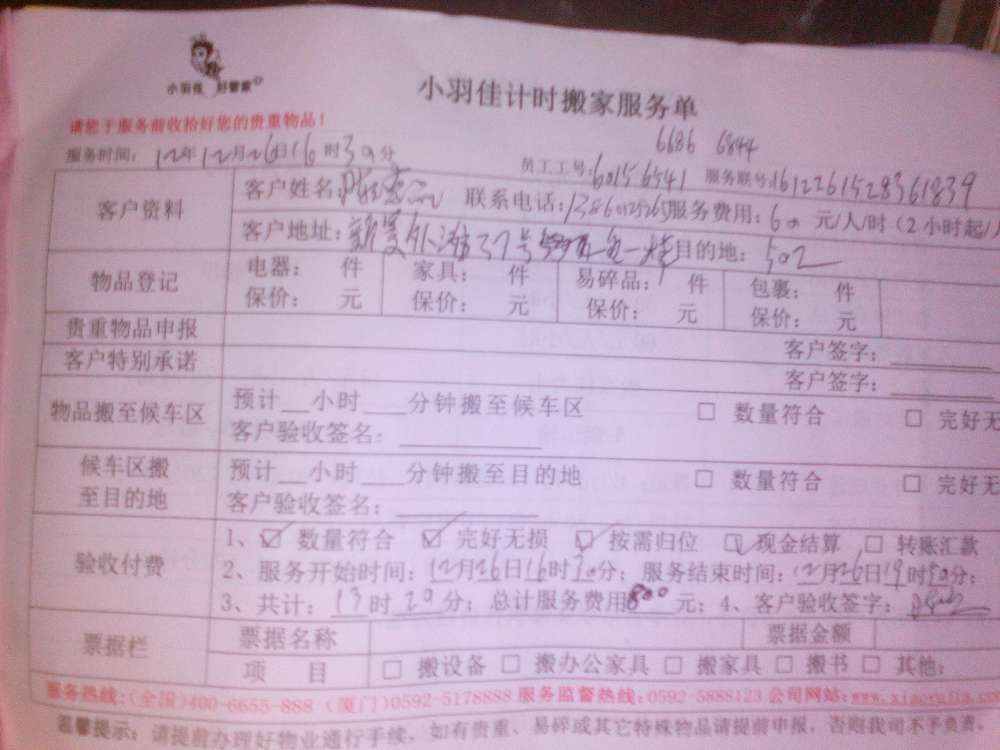 小羽佳 好管家
小羽佳计时搬家服务单
请您于服务前收拾好您的贵重物品！
6686 6844
服务时间：12年12月26日16时30分 员工工号：60156541 服务联号：
客户资料 客户姓名： 联系电话： 服务费用：60元/人/时（2小时起/
客户地址： 外滩27号 目的地：502
物品登记 电器： 件 家具： 件 易碎品： 件 包裹： 件
保价： 元 保价： 元 保价： 元 保价： 元
贵重物品申报 客户签字：
客户特别承诺 客户签字：
物品搬至候车区 预计__小时___分钟搬至候车区 □ 数量符合 □ 完好无
客户验收签名：
候车区搬至目的地 预计__小时___分钟搬至目的地 □ 数量符合 □ 完好无
客户验收签名：
验收付费 1、☑ 数量符合 ☑ 完好无损 ☑ 按需归位 ☑ 现金结算 □ 转账汇款
2、服务开始时间：12月26日16时30分；服务结束时间：12月26日19时50分；
3、共计：13时20分；总计服务费用800元；4、客户验收签字：
票据栏 票据名称 票据金额
项 目 □ 搬设备 □ 搬办公家具 □ 搬家具 □ 搬书 □ 其他：
服务热线：(全国)400-6655-888 (厦门)0592-5178888 服务监督热线：0592-5888123 公司网站：www.xiaoyujia.com
温馨提示：请提前办理好物业通行手续，如有贵重、易碎或其它特殊物品请提前申报，否则我司不予负责。